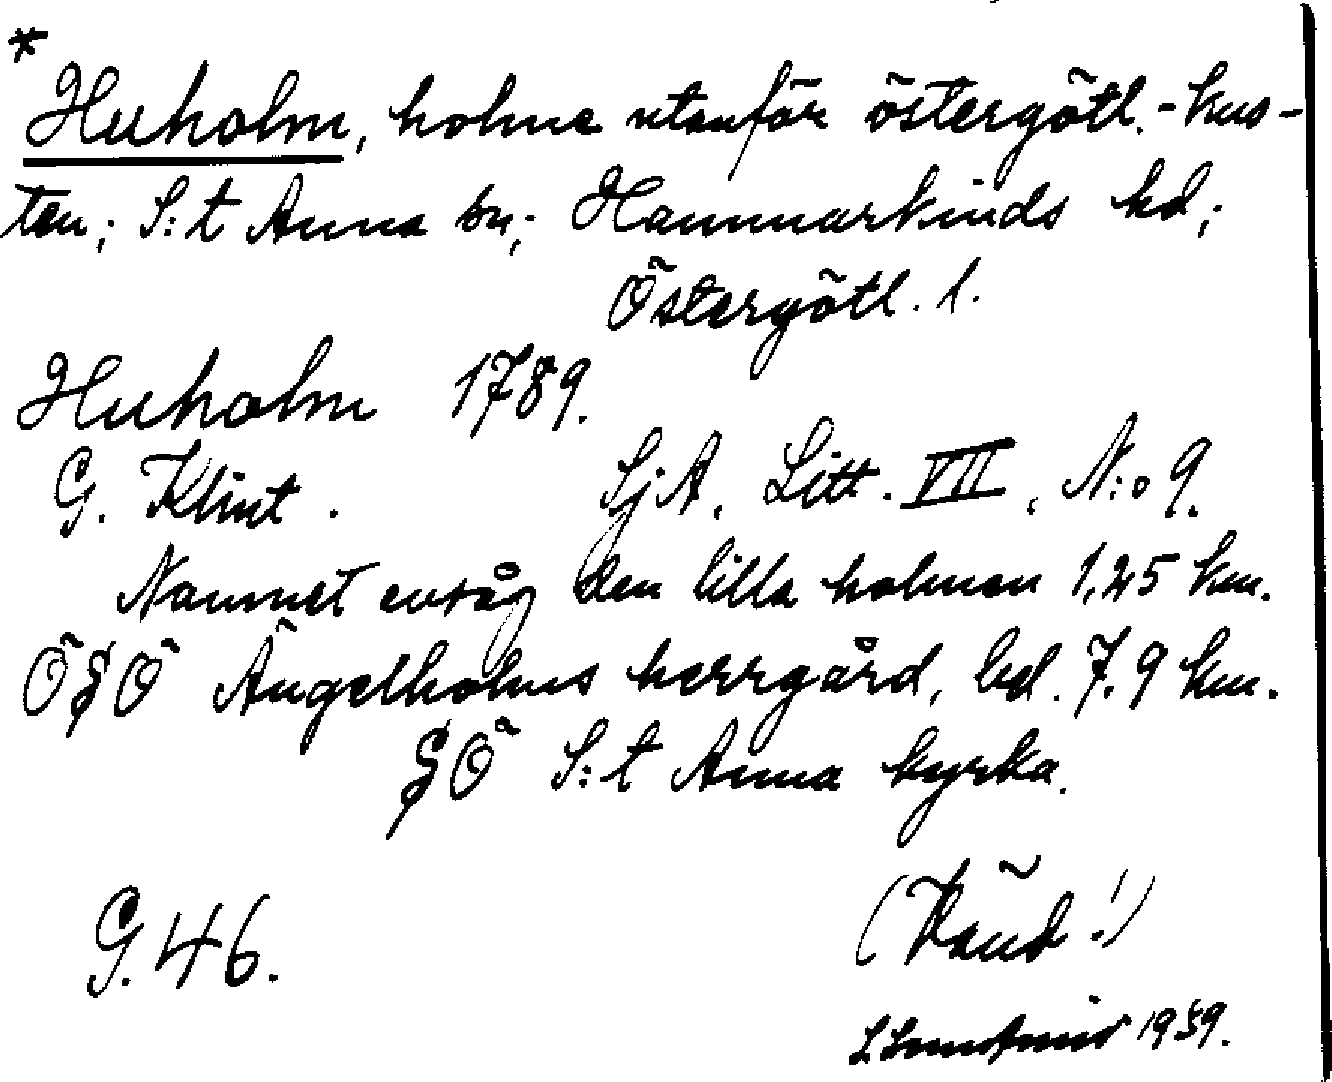 *
Huholm, holme utanför östergötl.-kus-
ten; S:t Anna sn; Hammarkinds hd;
Östergötl. l.
Huholm 1789.
G. Klint. SjA, Litt. VII, N:o 9.
Namnet avsåg den lilla holmen 1,25 km.
ÖSÖ Ängelholms herrgård, bel. 7.9 km.
SÖ S:t Anna kyrka.
(Känd!)
G. 46.
1939.